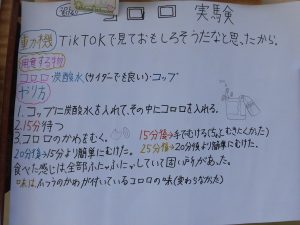 コロロ 実験
動機 TikTOKで見ておもしろそうだなと思ったから。
用意する物
コロロ・炭酸水(サイダーでも良い)・コップ
やり方
1.コップに炭酸水を入れて、その中にコロロを入れる。
2.15分待つ
3.コロロのかわをむく。 15分後→手でむける(ちょとむきたくかった)
20分後→15分より簡単にむけた。 25分後→20分後より簡単にむけた。
食べた感じは全部ふにゃふにゃしていて固い所があった。
味は、ふつうのかわが付いているコロロの味(変わらなかた)